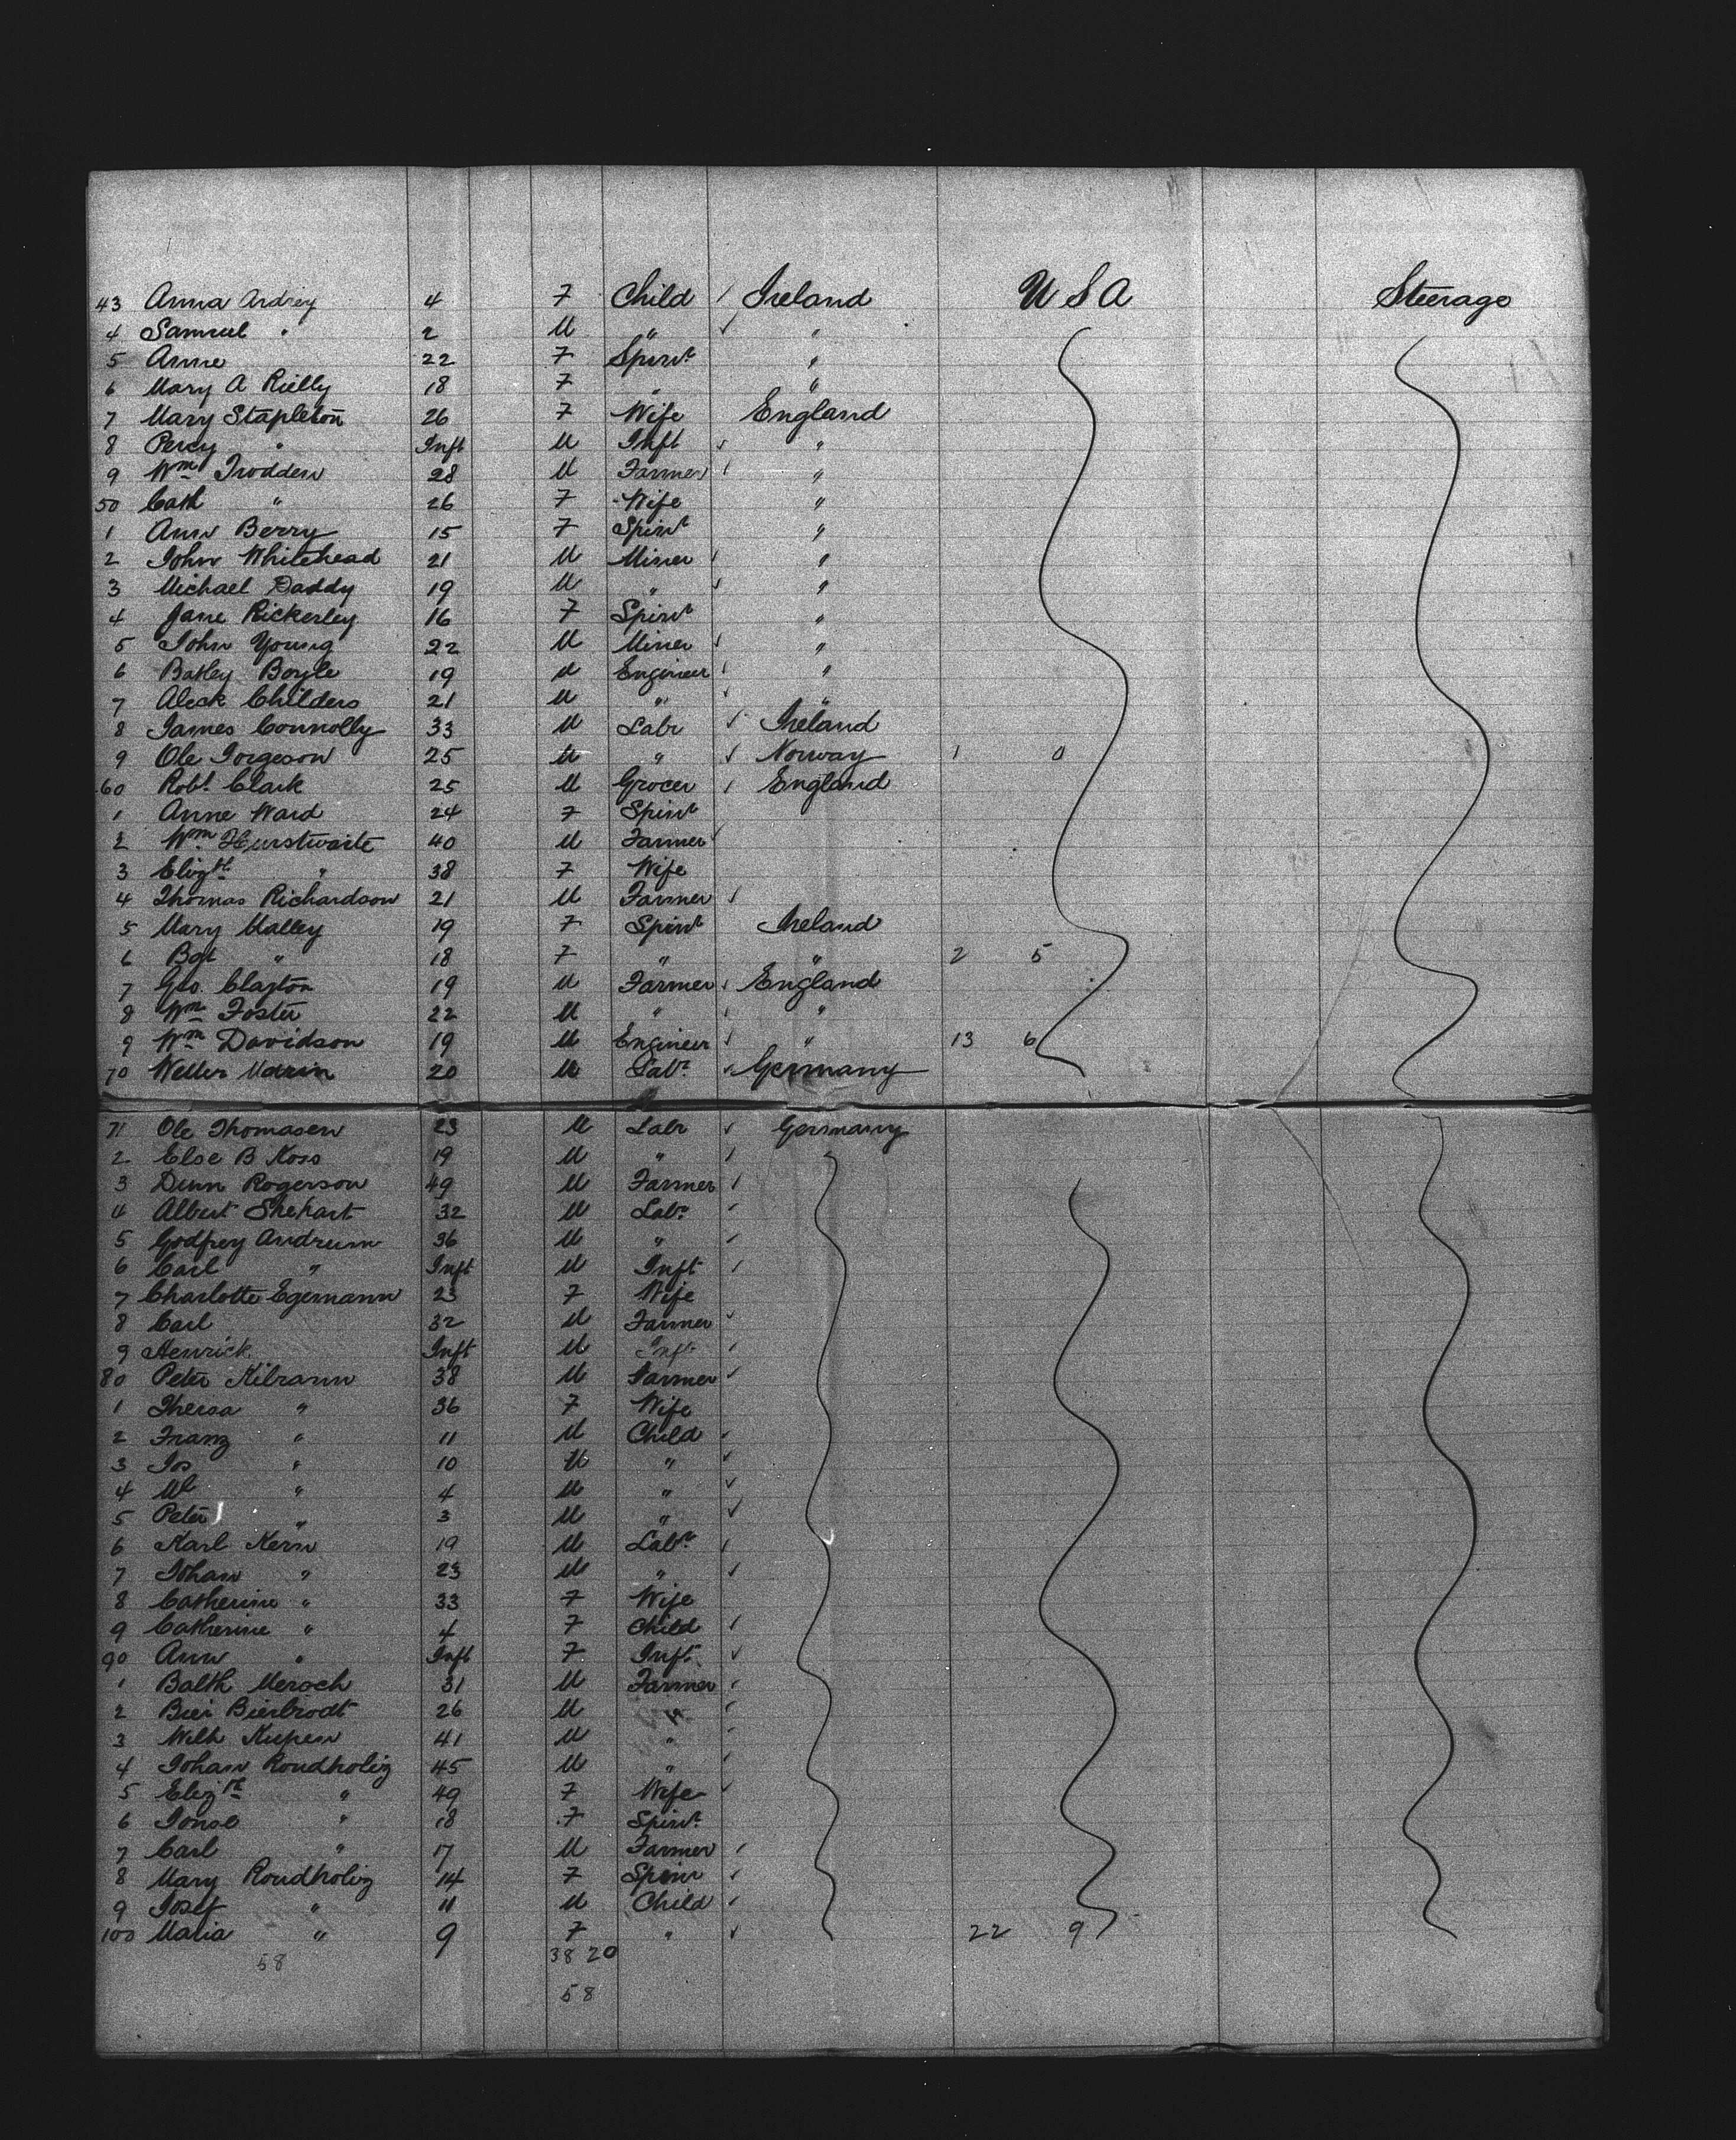 43 Anna Ardrey 4 F Child Ireland U S A Steerage
4 Samuel " 2 M " "
5 Anne 22 F Spinr "
6 Mary A Rielly 18 F " "
7 Mary Stapleton 26 F Wife England
8 Percy " Inft M Inft "
9 Wm Trodden 28 M Farmer "
50 Cath " 26 F Wife "
1 Ann Berry 15 F Spinr "
2 John Whitehead 21 M Miner "
3 Michael Daddy 19 M " "
4 Jane Rickerley 16 F Spinr "
5 John Young 22 M Miner "
6 Batley Boyle 19 M Engineer "
7 Aleck Childers 21 M " "
8 James Connolly 33 M Labr Ireland
9 Ole Torgeson 25 M " Norway 1 0
60 Robt Clark 25 M Grocer England
1 Anne Ward 24 F Spinr
2 Wm Hurstwaite 40 M Farmer
3 Elizth " 38 F Wife
4 Thomas Richardson 21 M Farmer
5 Mary Malley 19 F Spinr Ireland
6 Bgt " 18 F " " 2 5
7 Geo. Clayton 19 M Farmer England
8 Wm Foster 22 M " "
9 Wm Davidson 19 M Engineer " 13 6
70 Weller 20 M Labr Germany
71 Ole Thomasen 23 M Labr Germany
2 Else B Koss 19 M "
3 Dinn Rogerson 49 M Farmer
4 Albert Shehart 32 M Labr
5 Godfrey Andreum 36 M "
6 Carl " Inft M Inft
7 Charlotte Egemann 23 F Wife
8 Carl 32 M Farmer
9 Henrick Inft M Inft
80 Peter Kilrann 38 M Farmer
1 Theresa " 36 F Wife
2 Franz " 11 M Child
3 Jos " 10 M "
4 " 4 M "
5 Peter " 3 M "
6 Karl Kern 19 M Labr
7 Johan " 23 M "
8 Catherine " 33 F Wife
9 Catherine " 4 F Child
90 Ann " Inft F Inft
1 Balth Meroch 31 M Farmer
2 Bierbrodt 26 M "
3 Wilh Kupen 41 M "
4 Johan Roudholig 45 M "
5 Elizth " 49 F Wife
6 " 18 F Spinr
7 Carl " 17 M Farmer
8 Mary Roudholig 14 F Spinr
9 Josef " 11 M Child
100 Maria " 9 F " 22 9
58 38 20
58